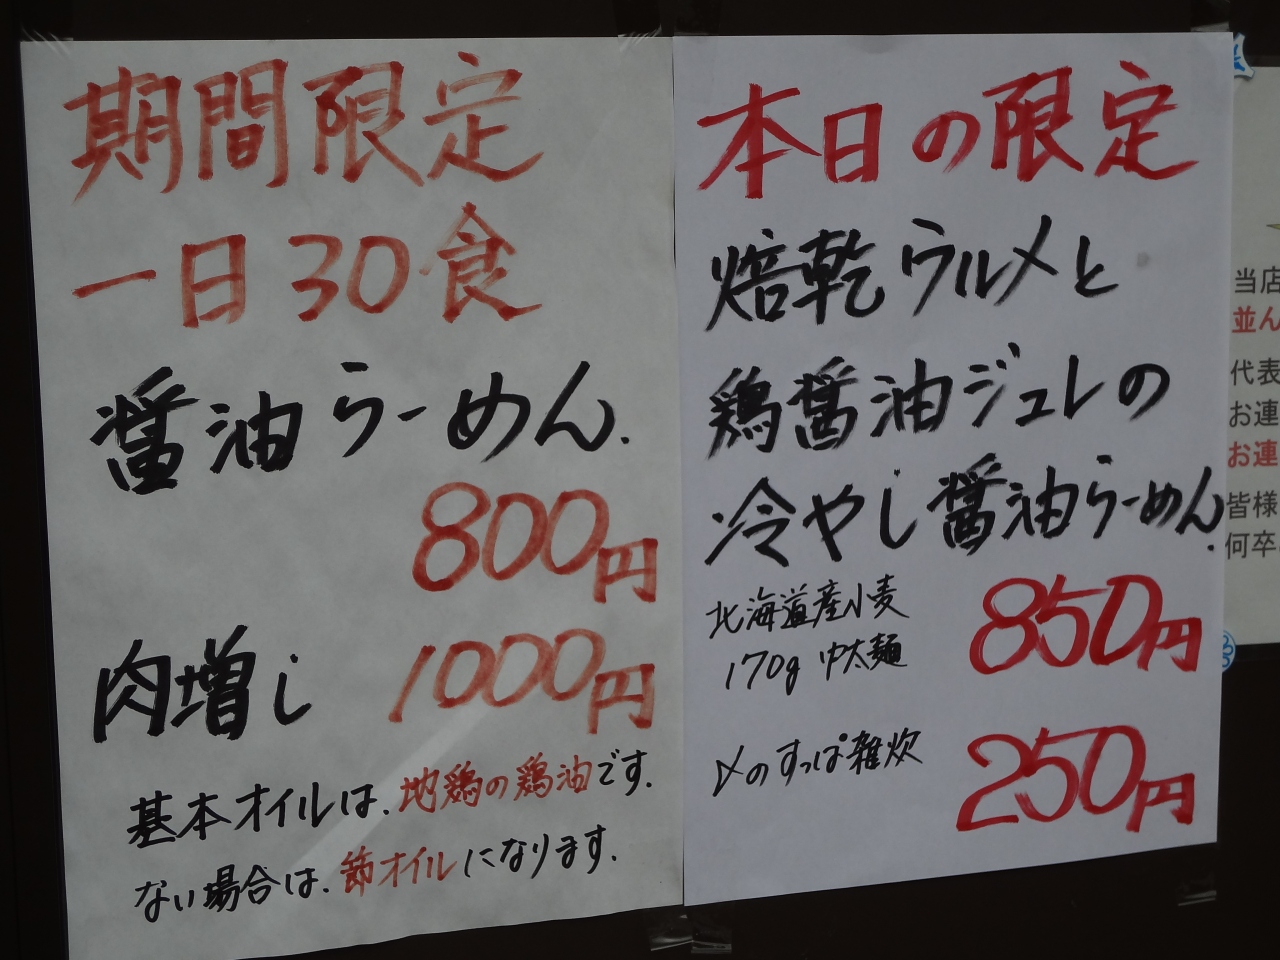 期間限定
一日30食
醤油らーめん.
800円
肉増し 1000円
基本オイルは.地鶏の鶏油です.
ない場合は.節オイルになります.
本日の限定
焙乾ウルメと
鶏醤油ジュレの
冷やし醤油らーめん.
850円
北海道産小麦
170g 中太麺
〆のすっぱ雑炊
250円
当店
並ん
代表
お連
お連
皆様
何卒